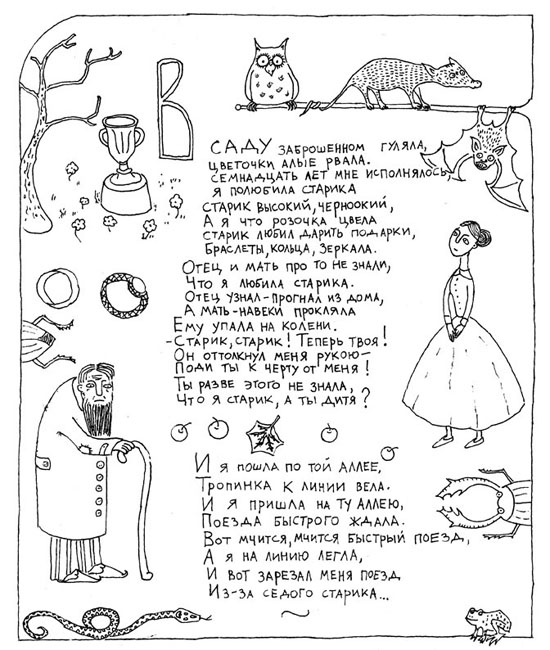 В
САДУ ЗАБРОШЕННОМ ГУЛЯЛА,
ЦВЕТОЧКИ АЛЫЕ РВАЛА.
СЕМНАДЦАТЬ ЛЕТ МНЕ ИСПОЛНЯЛОСЬ,
Я ПОЛЮБИЛА СТАРИКА
СТАРИК ВЫСОКИЙ, ЧЕРНООКИЙ,
А Я ЧТО РОЗОЧКА ЦВЕЛА
СТАРИК ЛЮБИЛ ДАРИТЬ ПОДАРКИ,
БРАСЛЕТЫ, КОЛЬЦА, ЗЕРКАЛА.
ОТЕЦ И МАТЬ ПРО ТО НЕ ЗНАЛИ,
ЧТО Я ЛЮБИЛА СТАРИКА.
ОТЕЦ УЗНАЛ - ПРОГНАЛ ИЗ ДОМА,
А МАТЬ - НАВЕКИ ПРОКЛЯЛА
ЕМУ УПАЛА НА КОЛЕНИ.
- СТАРИК, СТАРИК! ТЕПЕРЬ ТВОЯ!
ОН ОТТОЛКНУЛ МЕНЯ РУКОЮ -
ПОДИ ТЫ К ЧЕРТУ ОТ МЕНЯ!
ТЫ РАЗВЕ ЭТОГО НЕ ЗНАЛА,
ЧТО Я СТАРИК, А ТЫ ДИТЯ?
И Я ПОШЛА ПО ТОЙ АЛЛЕЕ,
ТРОПИНКА К ЛИНИИ ВЕЛА.
И Я ПРИШЛА НА ТУ АЛЛЕЮ,
ПОЕЗДА БЫСТРОГО ЖДАЛА.
ВОТ МЧИТСЯ, МЧИТСЯ БЫСТРЫЙ ПОЕЗД,
А Я НА ЛИНИЮ ЛЕГЛА,
И ВОТ ЗАРЕЗАЛ МЕНЯ ПОЕЗД
ИЗ-ЗА СЕДОГО СТАРИКА...